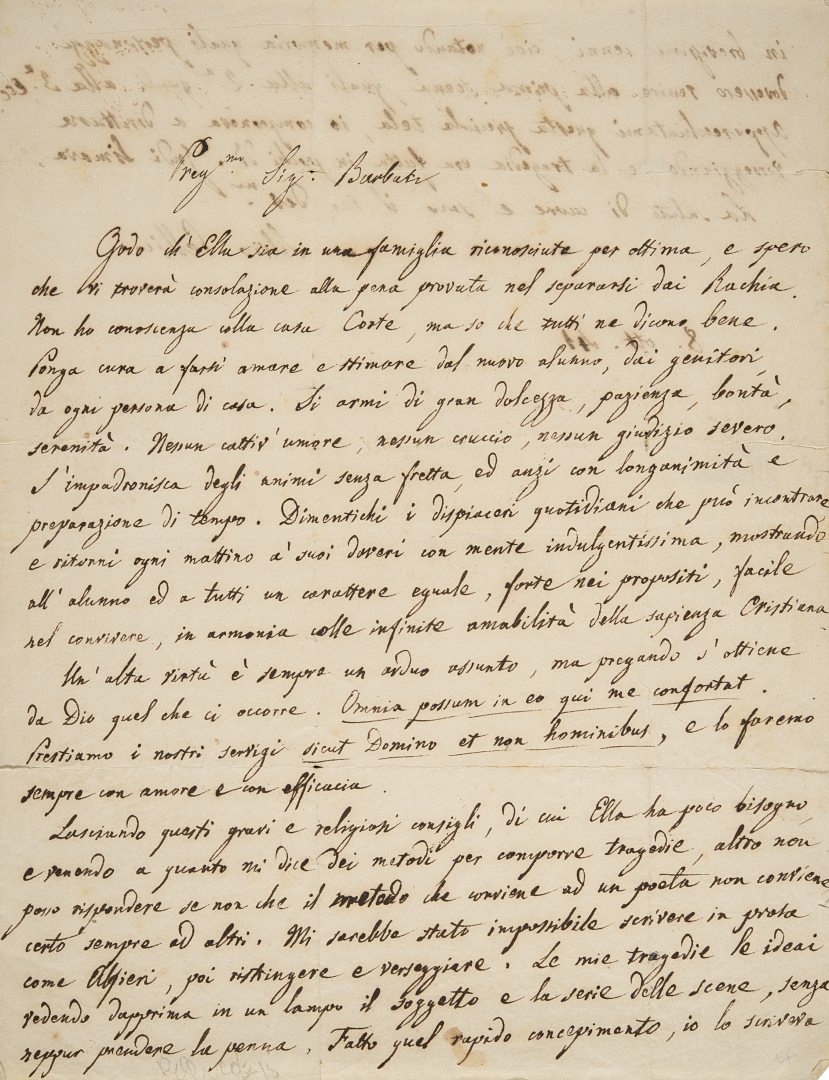 Preg.mo Sig.r Barbati
Godo ch' Ella sia in una famiglia riconosciuta per ottima, e spero
che vi troverà consolazione alla pena provata nel separarsi dai Rachia.
Non ho conoscenza colla casa Corte, ma so che tutti ne dicono bene.
Ponga cura a farsi amare e stimare dal nuovo alunno, dai genitori,
da ogni persona di casa. Si armi di gran dolcezza, pazienza, bontà,
serenità. Nessun cattiv' umore, nessun cruccio, nessun giudizio severo.
S' impadronisca degli animi senza fretta, ed anzi con longanimità e
preparazione di tempo. Dimentichi i dispiaceri quotidiani che può incontrare
e ritorni ogni mattino a' suoi doveri con mente indulgentissima, mostrando
all' alunno ed a tutti un carattere eguale, forte nei propositi, facile
nel convivere, in armonia colle infinite amabilità della sapienza Cristiana
Un' alta virtù è sempre un arduo assunto, ma pregando s' ottiene
da Dio quel che ci occorre. Omnia possum in eo qui me confortat.
Prestiamo i nostri servigi sicut Domino et non hominibus, e lo faremo
sempre con amore e con efficacia.
Lasciando questi gravi e religiosi consigli, di cui Ella ha poco bisogno,
e venendo a quanto mi dice dei metodi per comporre tragedie, altro non
posso rispondere se non che il metodo che conviene ad un poeta non conviene
certo sempre ad altri. Mi sarebbe stato impossibile scrivere in prosa
come Alfieri, poi ristringere e verseggiare. Le mie tragedie le ideai
vedendo dapprima in un lampo il soggetto e la serie delle scene, senza
neppur prendere la penna. Fatto quel rapido concepimento, io lo scriveva